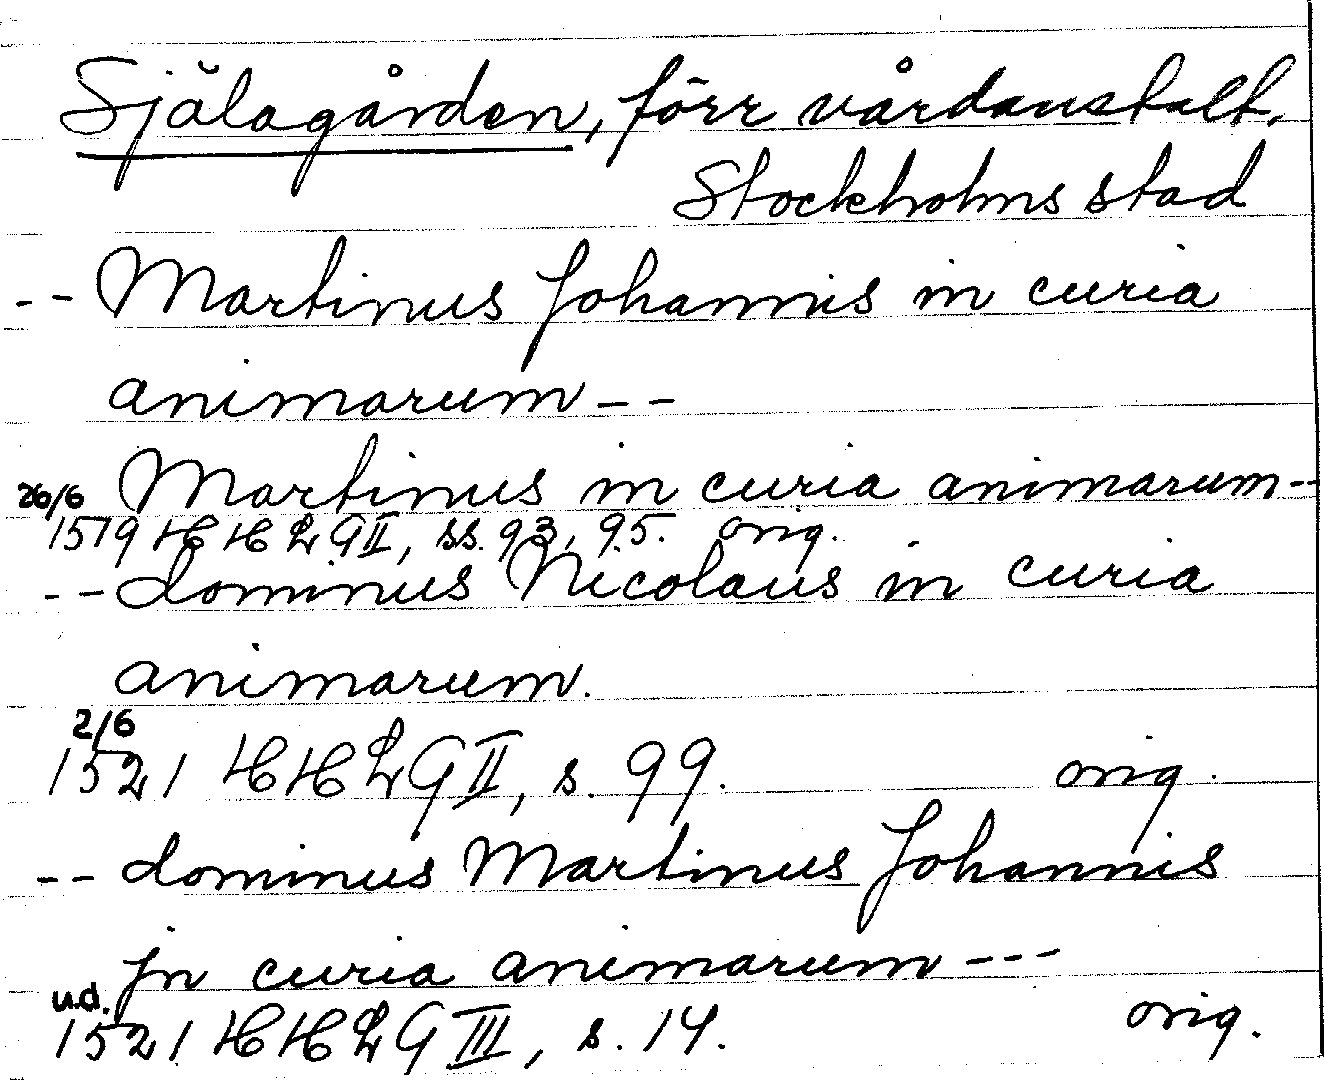 Själagården, förr vårdanstalt.
Stockholms stad
-- Martinus Johannis in curia
animarum --
Martinus in curia animarum--
26/6
1519 HHLG II, ss. 93, 95. orig.
-- dominus Nicolaus in curia
animarum.
2/6
1521 HHLG II, s. 99. orig.
-- dominus Martinus Johannis
jn curia animarum ---
u.d.
1521 HHLG III, s. 14. orig.